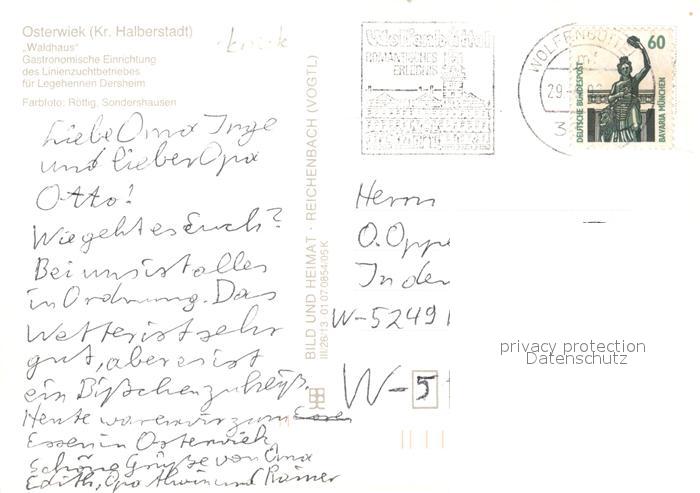 Osterwiek (Kr. Halberstadt)
„Waldhaus"
Gastronomische Einrichtung
des Linienzuchtbetriebes
für Legehennen Dersheim
Farbfoto: Röttig, Sondershausen
Liebe Oma Inge
und lieber Opa
Otto!
Wie geht es Euch?
Bei uns ist alles
in Ordnung. Das
Wetter ist sehr
gut, aber es ist
ein Bißchen zu heiß.
Heute waren wir zum Essen
Essen in Osterwiek
Schöne Grüße von Oma
Edith, Opa Alwin und Rainer
BILD UND HEIMAT · REICHENBACH (VOGTL)
III/26/13 01 07 0854/05 K
Wolfenbüttel
ROMANTISCHES
ERLEBNIS
WOLFENBÜTTEL
29.
3
60
DEUTSCHE BUNDESPOST
BAVARIA MÜNCHEN
Herrn
O. Oppe
In der
W-5249
W-5
privacy protection
Datenschutz